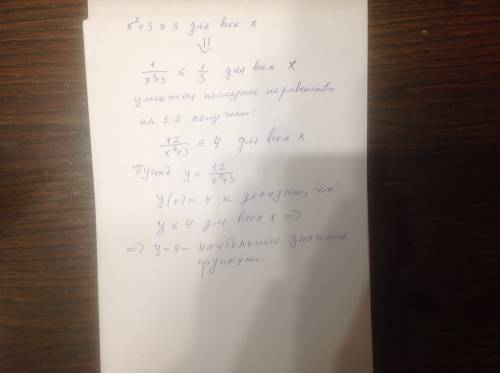 x²+3 ≥ 3 для всех x
⇓
1/(x²+3) ≤ 1/3 для всех x
умножая последнее неравенство
на 12 получим:
12/(x²+3) ≤ 4 для всех x
Пусть y = 12/(x²+3)
y(0) = 4 и доказано, что
y ≤ 4 для всех x =>
=> y=4 – наибольшее значение
функции.